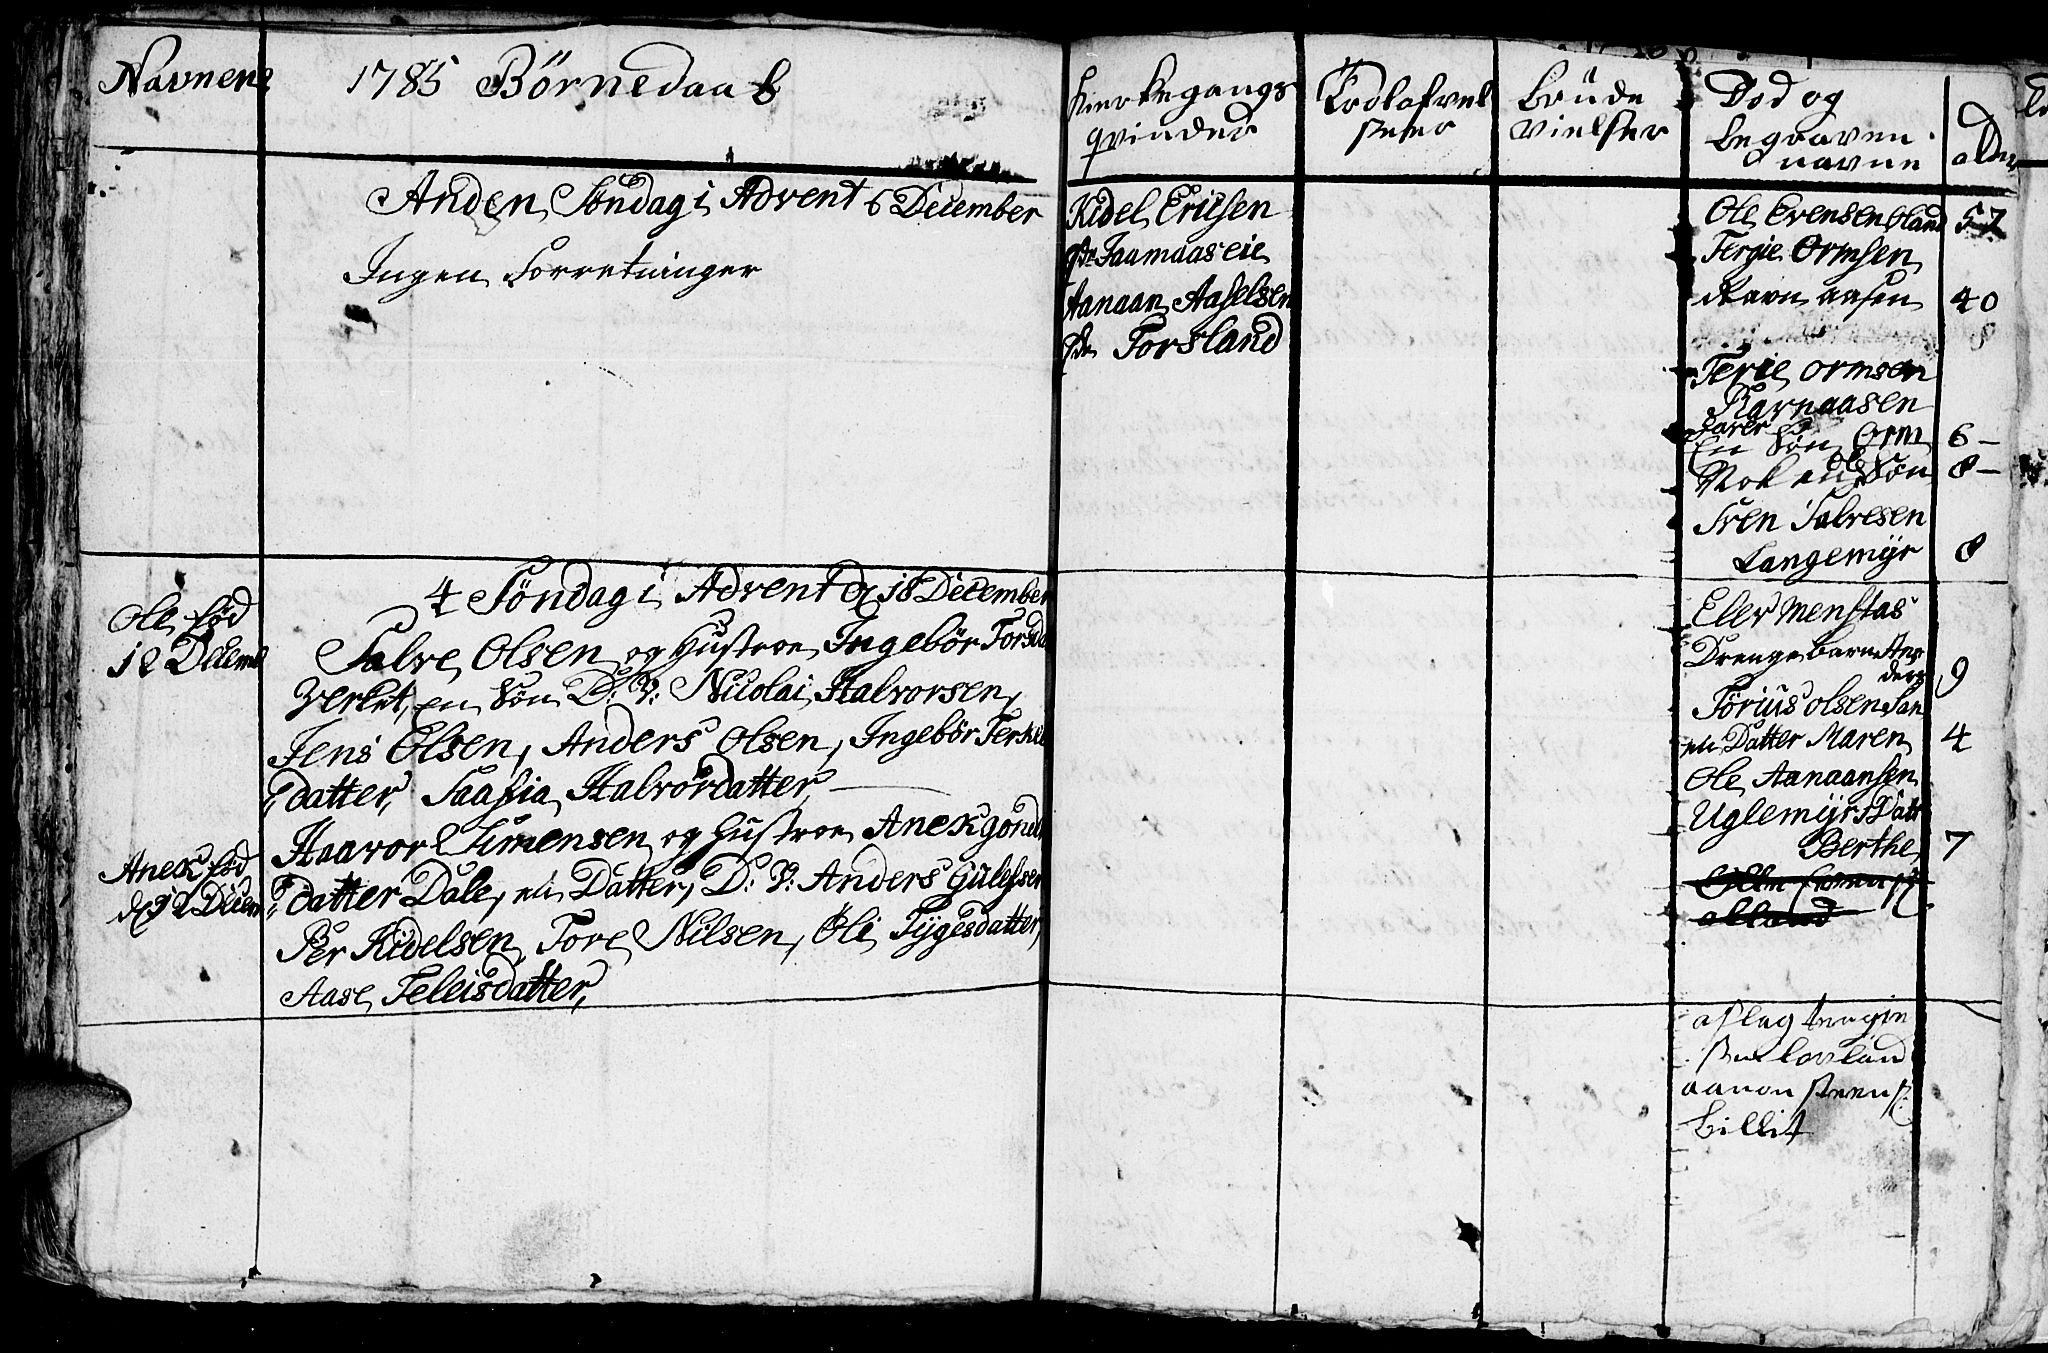 Navnene
1785 Börnedaab
Kierkegangs
qvinder
Trolofvel
seser
Brude
vielser
Död og
begraven
navne
alder
Anden Söndag i Advent 6 December
Ingen Forretninger
Kidel Ericsen
Qv: Jaamaaseie
Aanaan Aaselsen
Torsland
Ole Evensen Oland 57
Tergie Ormsen
Ravnaasen 40
Terie ormsen
Ravnaasen
En Sön Orm 6 –
Nok en Sön Ole 8 –
Sven Salvesen
Langemÿr 8
Ole föd
12 Decemb
4 Söndag i Advent d 18 December
Salve Olsen og Hustroe Ingebör Torsd
Verket, en Sön D: V: Nicolai Halvorsen,
Jens Olsen, Anders Olsen, Ingebör Terkel
datter, Saafia Halvordatter
Elev Menstas
Drenge barn An
ders 9
Törius Olsen San
en Datter Maren 4
Ole Aanaansen
Uglemÿr Datt
Berthe 7
Anek föd
d 12 Decem
Haavor Simensen og Hustroe Anek Gond
datter Dale, en Datter, D: V: Anders Gulefsen
Per Kidelsen, Tore Nilsen, Oli Tÿgesdatter,
Aase Teleisdatter,
aslag
Lovland
aanon
billit